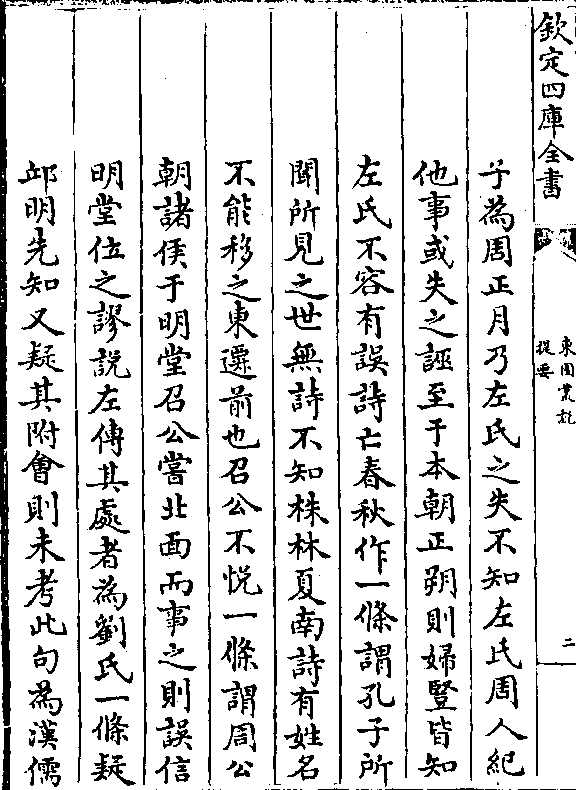 欽定四庫全書
東園叢説
提要
二
子為周正月乃左氏之失不知左氏周人紀
他事或失之誣至于本朝正朔則婦豎皆知
左氏不容有誤詩亡春秋作一條謂孔子所
聞所見之世無詩不知株林夏南詩有姓名
不能移之東遷前也召公不悅一條謂周公
朝諸侯于明堂召公嘗北面而事之則誤信
明堂位之謬說左傳其處者為劉氏一條疑
邱明先知又疑其附會則未考此句為漢儒